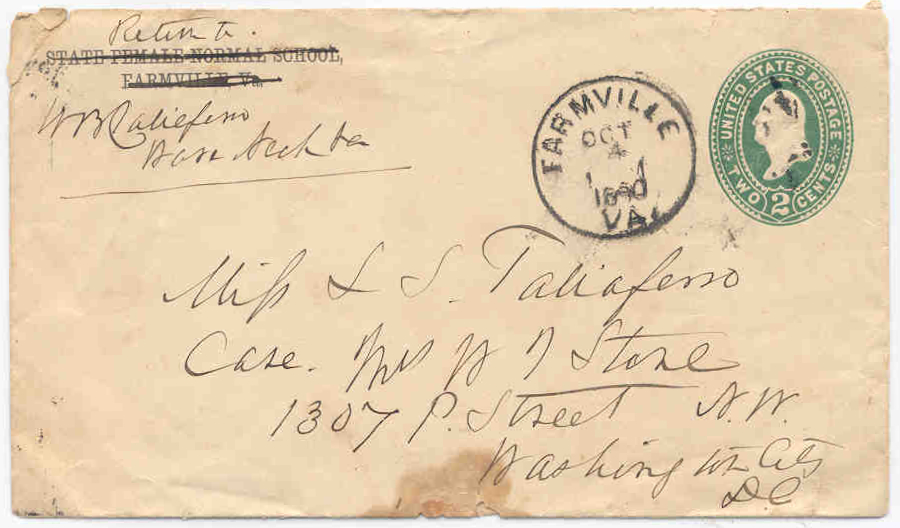 Return to.
STATE FEMALE NORMAL SCHOOL,
FARMVILLE, Va.
W B Taliaferro
Ware Neck Va
FARMVILLE
OCT
4
1890
VA.
UNITED STATES POSTAGE
TWO 2 CENTS
Miss L S. Taliaferro
Care. Mrs W J Stone
1307 P. Street N.W.
Washington City
DC